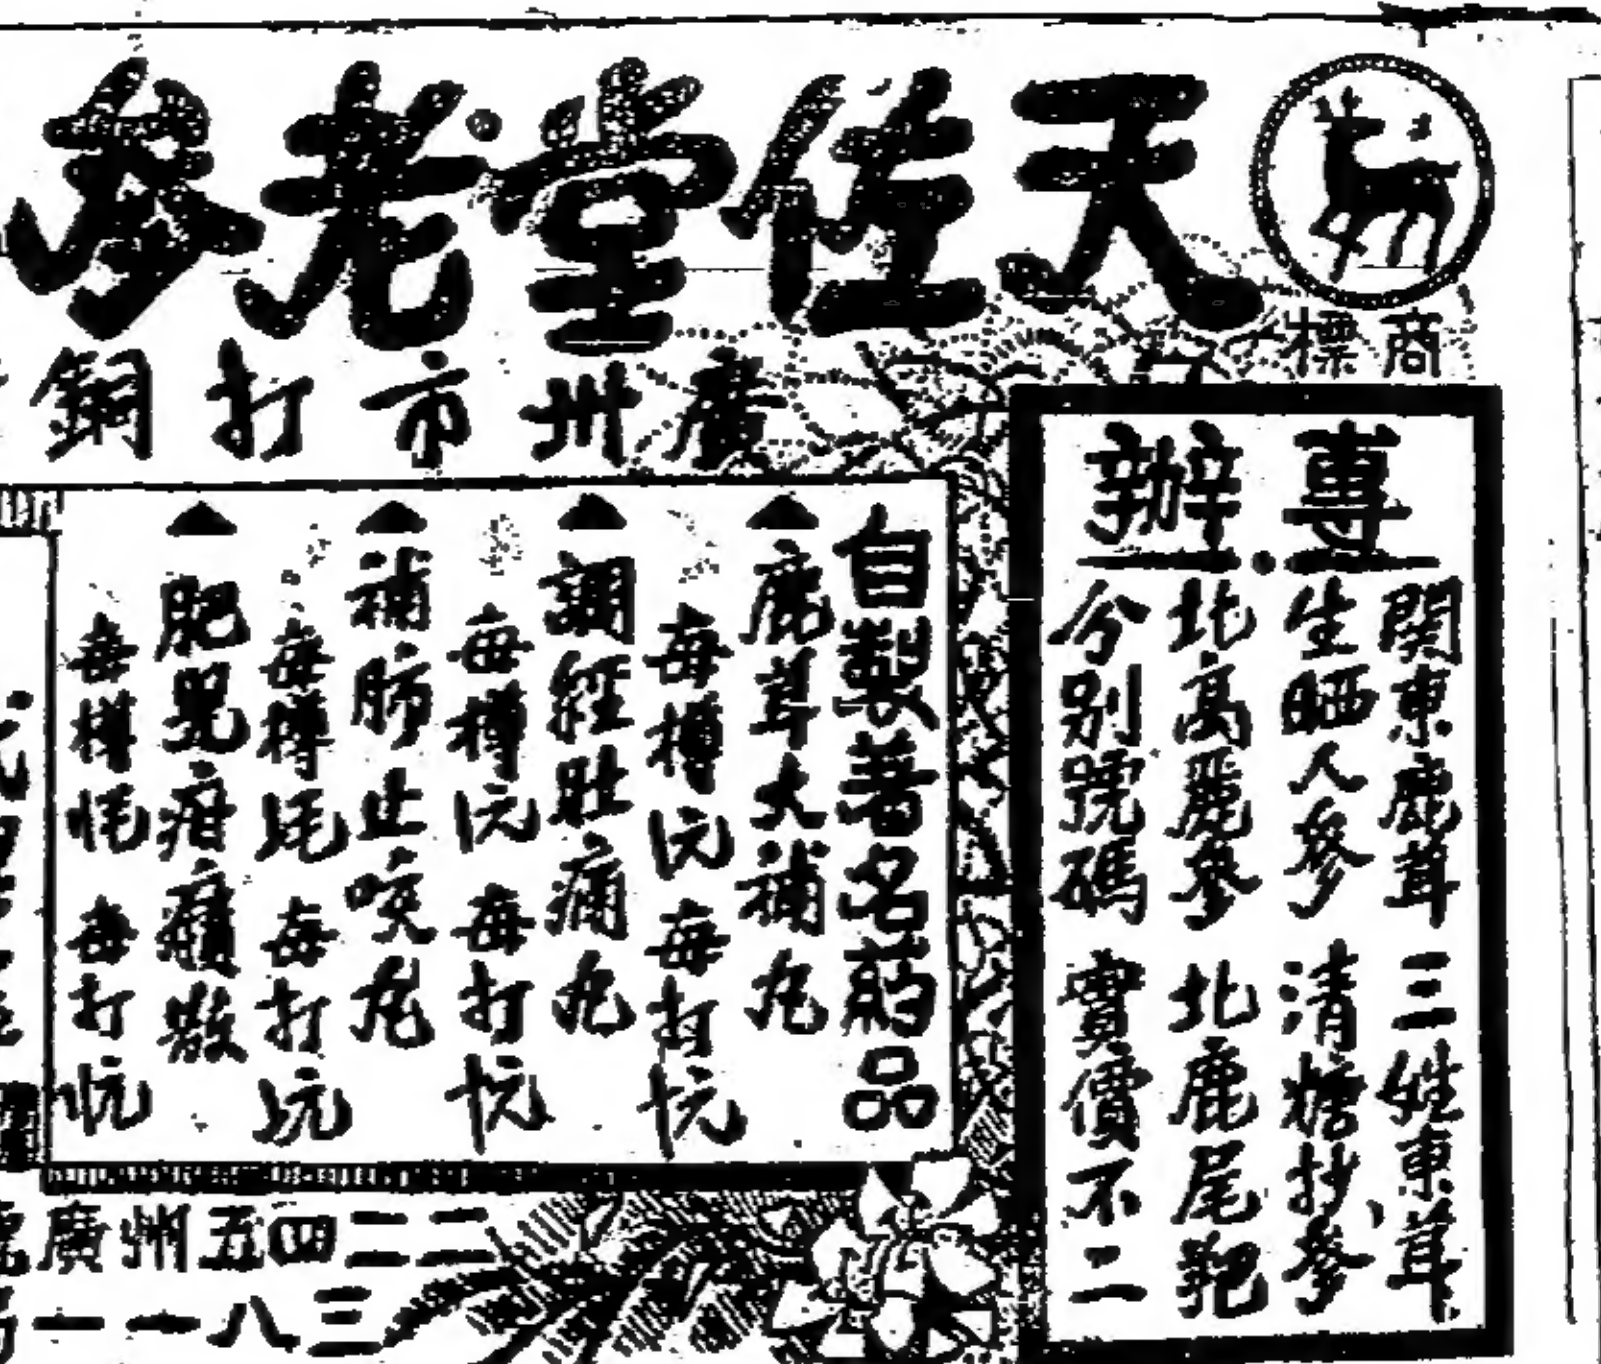 天佐堂老參
商標
廣州市打銅
專辦
関東鹿茸 三姓東茸
生晒人參 清糖抄參
北高麗參 北鹿尾羓
分別號碼 實價不二
自製著名葯品
鹿茸大補丸
每樽 每打
調經肚痛丸
每樽 每打
補肺止咳丸
每樽 每打
肥兒疳積散
每樽 每打
廣州五四二二
一一八三